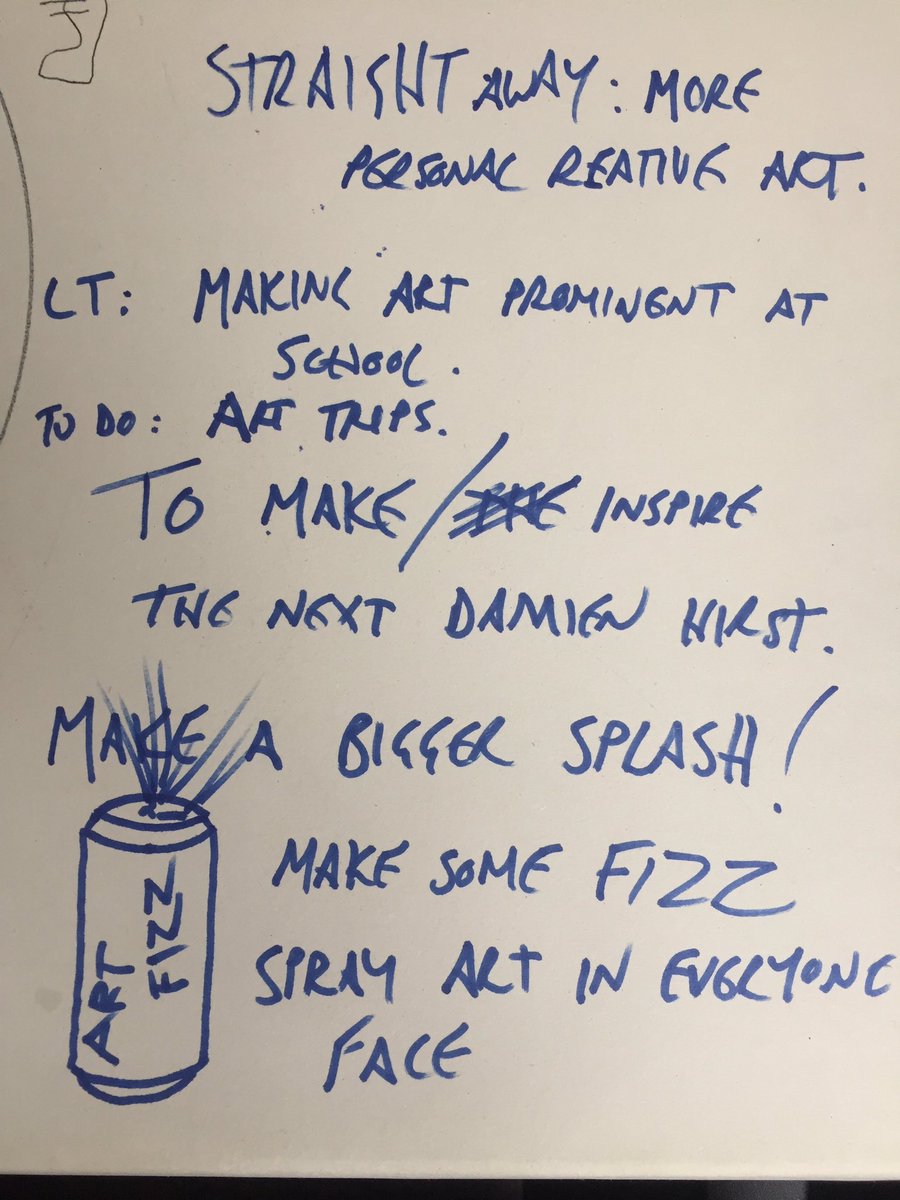 STRAIGHT AWAY: MORE
PERSONAL REATIVE ART.
LT: MAKING ART PROMINENT AT
SCHOOL.
TO DO: ART TRIPS.
TO MAKE / INSPIRE
THE NEXT DAMIEN HIRST.
MAKE A BIGGER SPLASH!
MAKE SOME FIZZ
SPRAY ART IN EVERYONE
FACE
ART
FIZZ